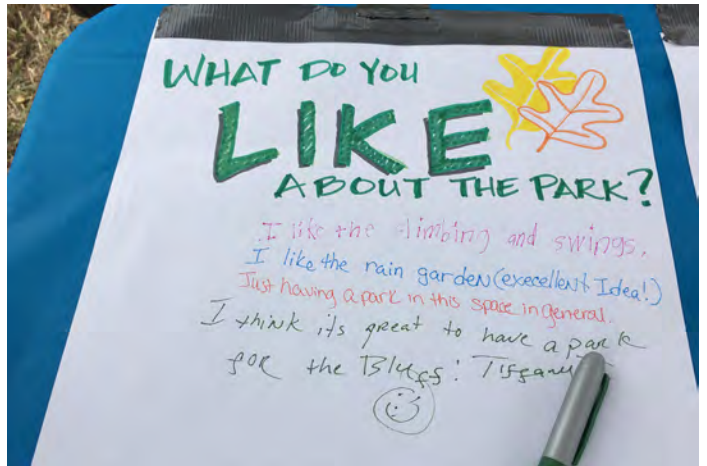 WHAT DO YOU
LIKE
ABOUT THE PARK?
I like the climbing and swings.
I like the rain garden (execellent Idea!)
Just having a park in this space in general.
I think its great to have a park
for the Bluffs! Tiffany